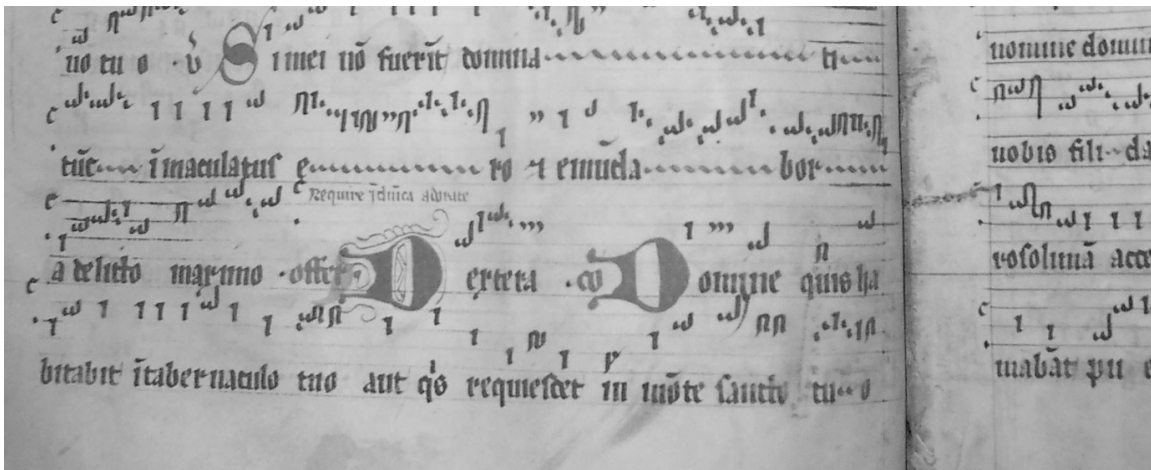 uo tu o · v̉ Si mei nō fuerīt domina ti
tūc īmaculatus e ro ⁊ emūda bor
Require ī dn̄ica
a delicto maximo · offer Dextera · co Domine quis ha
bitabit ī tabernaculo tuo aut q̄s requiescet in mōte sancto tu o
nomine domin
uobis fili da
rosolimā acce
mabāt pu e